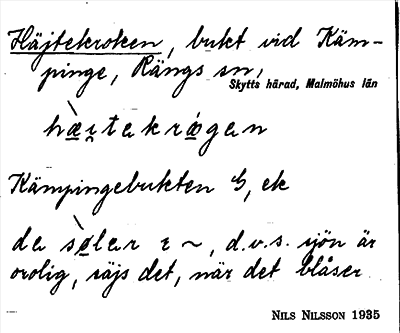 Häjtekroken, bukt vid Käm-
pinge, Rängs sn,
Skytts härad, Malmöhus län
hæi̯takrǿgan
Kämpingebukten G, ek
da sølar i ~, d.v.s. sjön är
orolig, säjs det, när det blåser.
NILS NILSSON 1935